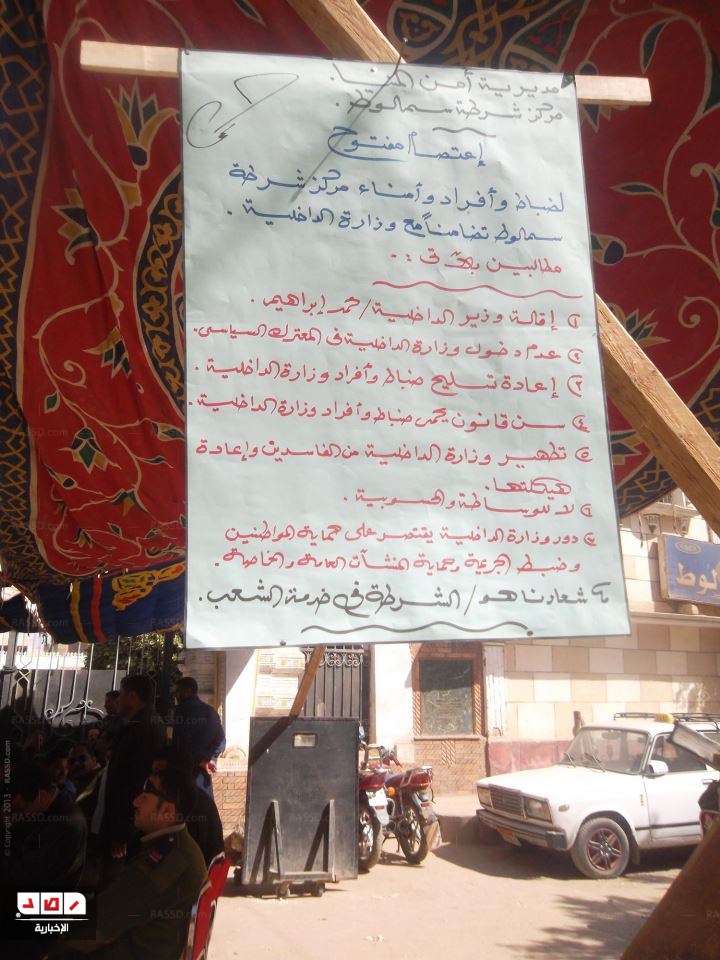 مديرية أمن المنيا.
مركز شرطة سمالوط.
إعتصام مفتوح
لضباط وأفراد وأمناء مركز شرطة
سمالوط تضامناً مع وزارة الداخلية.
مطالبين بالآتى :-
١) إقالة وزير الداخلية / محمد إبراهيم.
٢) عدم دخول وزارة الداخلية فى المعترك السياسى.
٣) إعادة تسليح ضباط وأفراد وزارة الداخلية.
٤) سن قانون يحمى ضباط وأفراد وزارة الداخلية.
٥) تطهير وزارة الداخلية من الفاسدين وإعادة
هيكلتها.
٦) لا للوساطة والمحسوبية.
٧) دور وزارة الداخلية يقتصر على حماية المواطنين
وضبط الجريمة وحماية المنشآت العامة والخاصة.
شعارنا هو / الشرطة فى خدمة الشعب.
رصد
الإخبارية
© Copyright 2013 - RASSD.com
RASSD.com